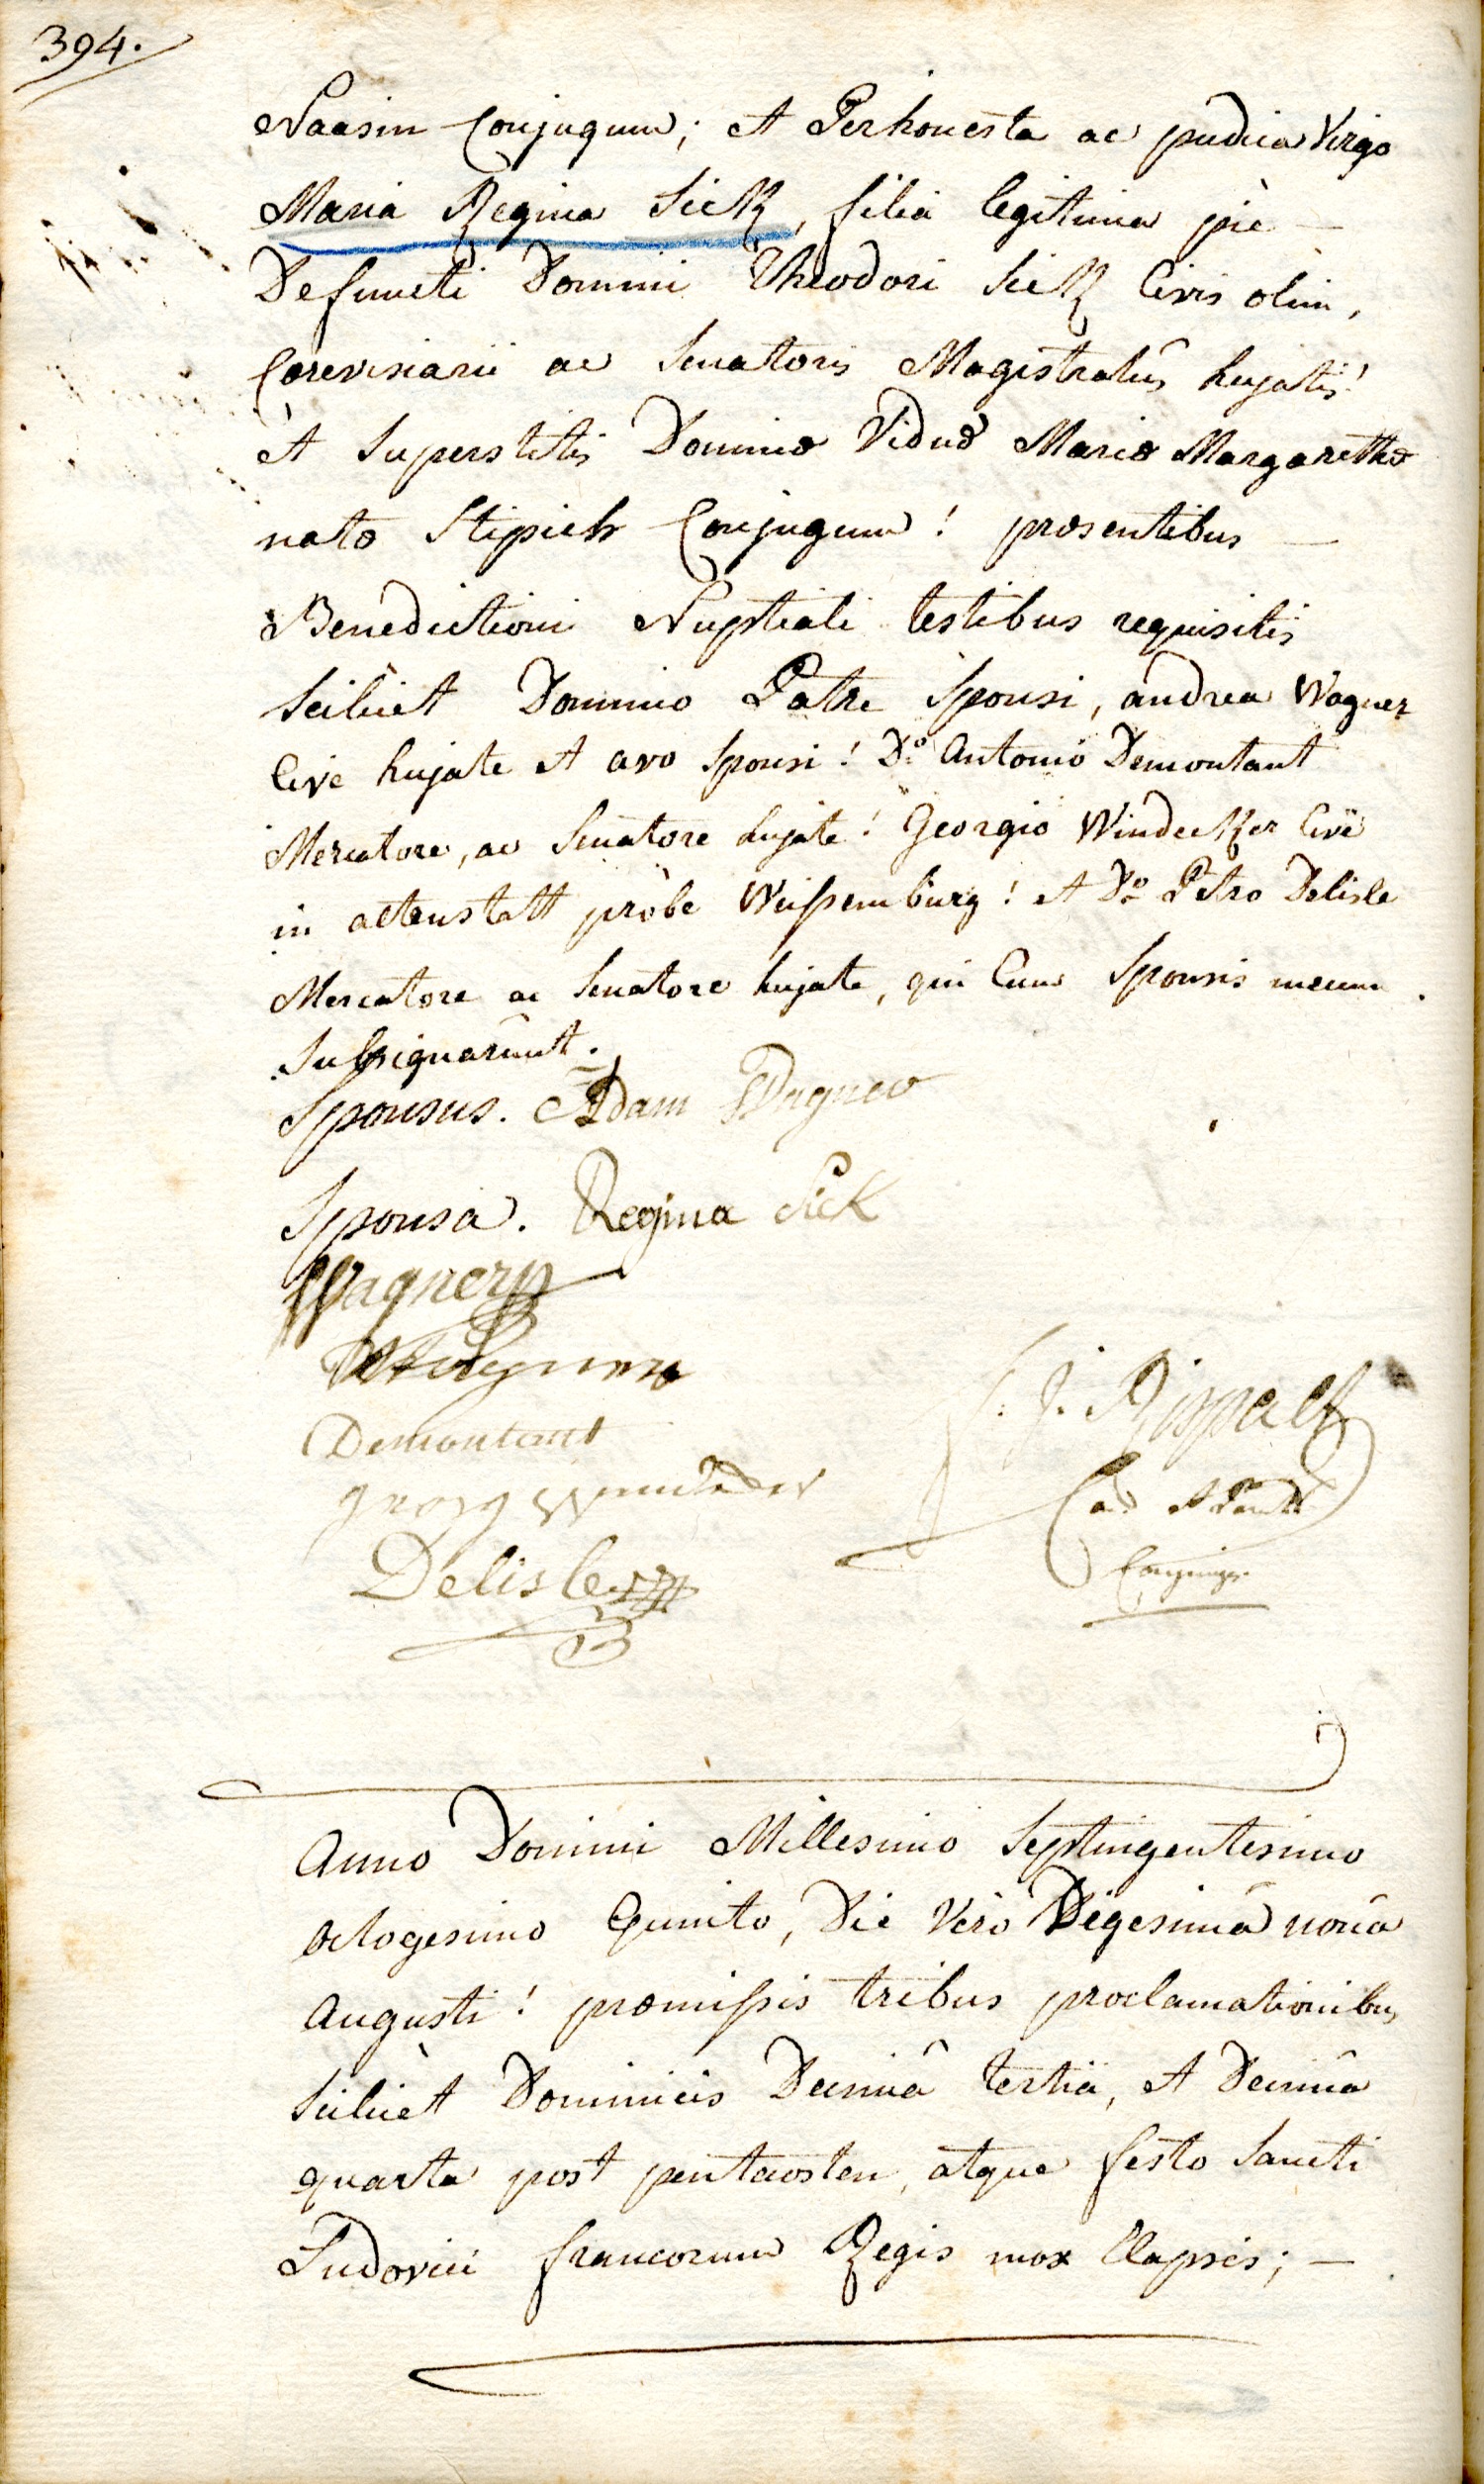 394.
Naasin Conjugum; et Perhonesta ac pudica Virgo
Maria Regina Sick, filia legitima piè
Defuncti Domini Theodori Sick Civis olim,
Cerevisiarii ac Senatoris Magistratûs hujatis!
et Superstitis Dominæ Viduæ Mariæ Margarethæ
natæ Stipich Conjugum! præsentibus —
Benedictioni Nuptiali testibus requisitis
Scilicet Domino Patre Sponsi, andrea Wagner
Cive hujate et avo Sponsi! Do. Antonio Demontant
Mercatore, ac Senatore hujate! Georgio Windecker Cive
in altenstatt probe Weissemburg! et Do Petro Delisle
Mercatore ac Senatore hujate, qui Cum Sponsis mecum
Subsignarunt.
Sponsus. Adam Wagner
Sponsa. Regina Sick
Wagner
Demontant
georg
Delisle
J. Rispalt
Anno Domini Millesimo Septingentesimo
octogesimo Quinto, Die Verò Vigesimâ nonâ
Augusti! præmissis tribus proclamationibus
Scilicet Dominicis Decimâ tertiâ, et Decimâ
quarta post pentecosten, atque festo Sancti
Ludovici francorum Regis mox Elapsis; —